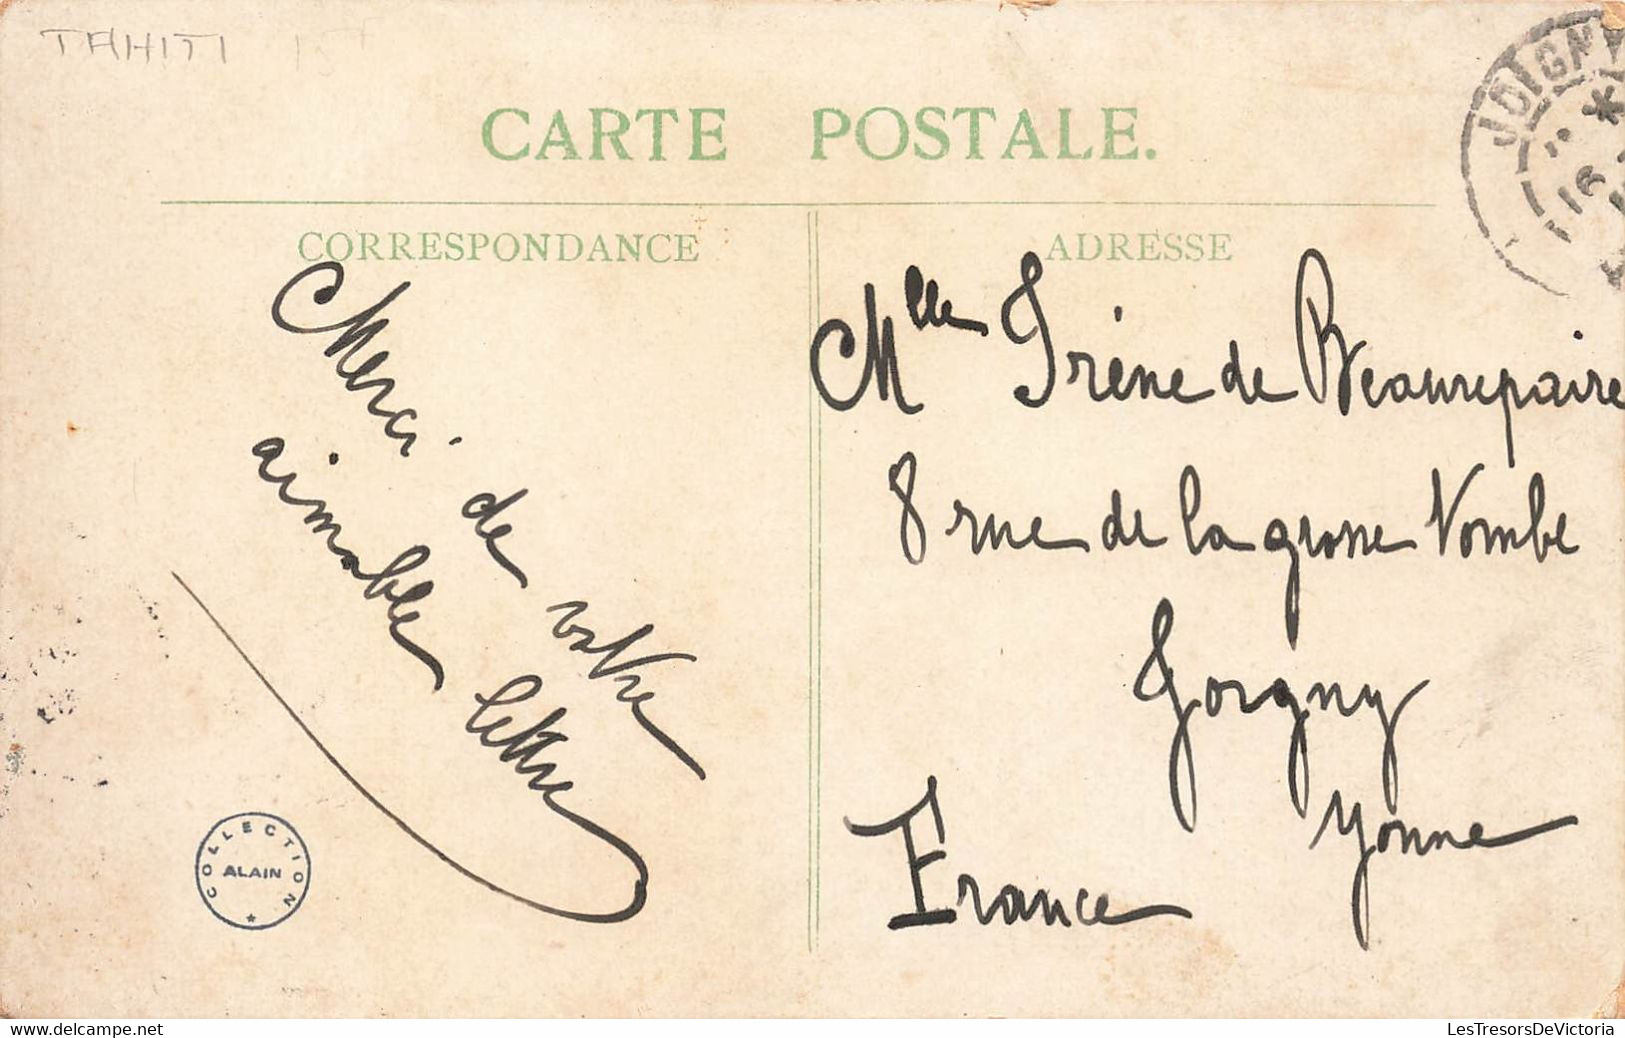 TAHITI
CARTE POSTALE.
JOIGNY
16
CORRESPONDANCE
Merci de votre
aimable lettre
COLLECTION
ALAIN
ADRESSE
Mlle Irène de Beaurepaire
8 rue de la grosse Tombe
Joigny
Yonne
France
delcampe.net
LesTresorsDeVictoria